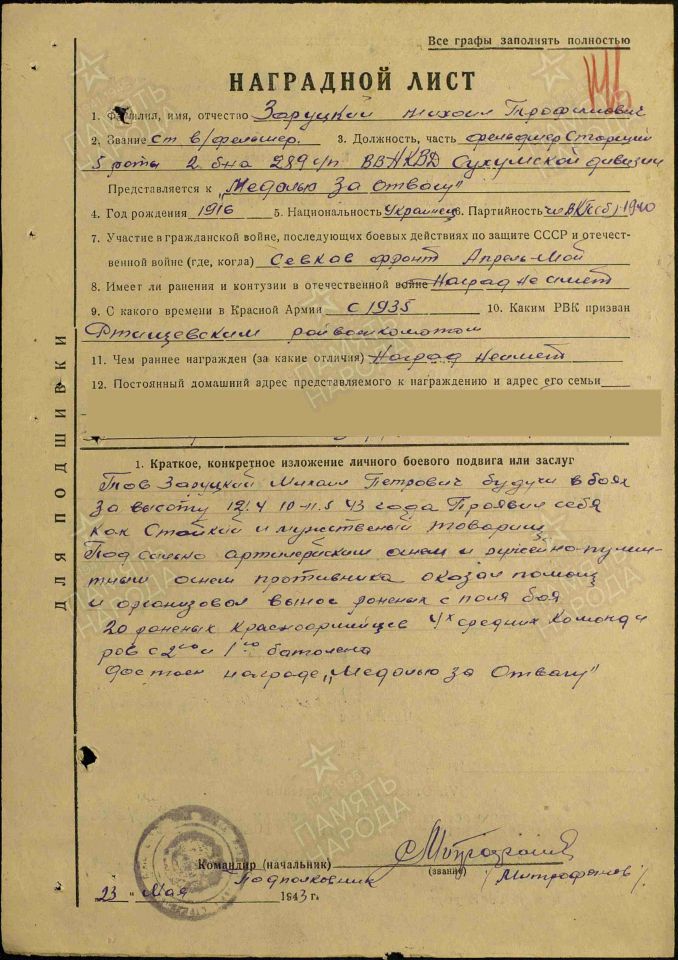 Все графы заполнять полностью
НАГРАДНОЙ ЛИСТ
1. Фамилия, имя, отчество Заруцкий Михаил Трофимович
2. Звание Ст в/фельшер. 3. Должность, часть фельдшер Старший
5 роты 2 б-на 289 сп ВВНКВД Сухумской дивизии
Представляется к „Медолью За отвагу"
4. Год рождения 1916 5. Национальность Украинец 6. Партийность чл ВКП(б)-1940
7. Участие в гражданской войне, последующих боевых действиях по защите СССР и отечест-
венной войне (где, когда) Севков фронт Апрель-Май
8. Имеет ли ранения и контузии в отечественной войне Наград Неимеет
9. С какого времени в Красной Армии с 1935 10. Каким РВК призван
Ртищевским райвоенкоматом
11. Чем раннее награжден (за какие отличия) Наград Неимеет
12. Постоянный домашний адрес представляемого к награждению и адрес его семьи
ДЛЯ ПОДШИВКИ
1. Краткое, конкретное изложение личного боевого подвига или заслуг
Тов Заруцкий Михаил Петрович будучи в боях
За высоту 121.4 10-11.5 43 года Проявил себя
как Стойкий и мужественый товарищ
Под сильно артилерийским огнем и ружейно-пулим-
тным огнем противника оказал помощ
и организовал вынос раненых с поля боя
20 раненых красноармейцев 4х средних Команди
ров с 2го и 1го батолена
Достоен награде „Медолью За Отвагу"
Командир (начальник)
(звание)
Подполковник /Митрофанов/
23 " Мая 1943 г.
ПАМЯТЬ НАРОДА